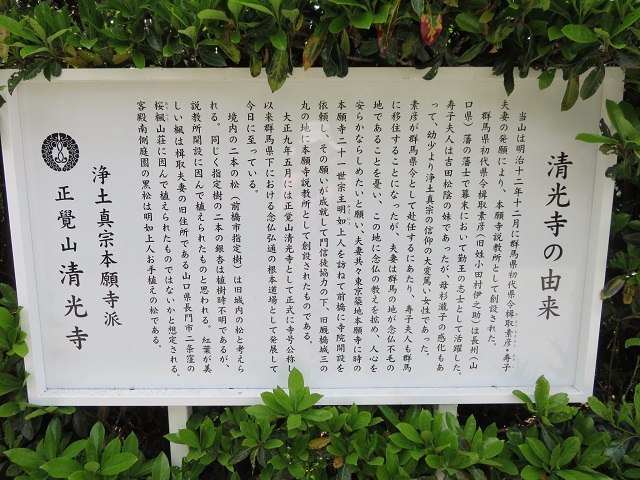 清光寺の由来
当山は明治十二年十二月に群馬県初代県令楫取素彦・寿子
夫妻の発願により、本願寺説教所として創設された。
群馬県初代県令楫取素彦(旧姓小田村伊之助)は長州(山
口県)藩の藩士で幕末において勤王の志士として活躍した。
寿子夫人は吉田松陰の妹であったが、母杉瀧子の感化もあ
って、幼少より浄土真宗の信仰の大変篤い女性であった。
素彦が群馬県令として赴任するにあたり、寿子夫人も群馬
に移住することになったが、夫妻は群馬の地が念仏不毛の
地であることを憂い、この地に念仏の教えを拡め、人心を
安らかならしめたいと願い、夫妻共々東京築地本願寺に時の
本願寺二十一世宗主明如上人を訪ねて前橋に寺院開設を
依頼し、その願いが成就して門信徒協力の下、旧厩橋城三の
丸の地に本願寺説教所として創設されたものである。
大正九年五月には正覚山清光寺として正式に寺号公称し
以来群馬県下における念仏弘通の根本道場として発展して
今日に至っている。
境内の二本の松(前橋市指定樹)は旧城内の松と考えら
れる。同じく指定樹の二本の銀杏は植樹時不明であるが、
説教所開設に因んで植えられたものと思われる。紅葉が美
しい楓は楫取夫妻の旧住所である山口県長門市二条窪の
桜楓山荘に因んで植られたものではないかと想定される。
客殿南側庭園の黒松は明如上人お手植えの松である。
浄土真宗本願寺派
正覺山清光寺